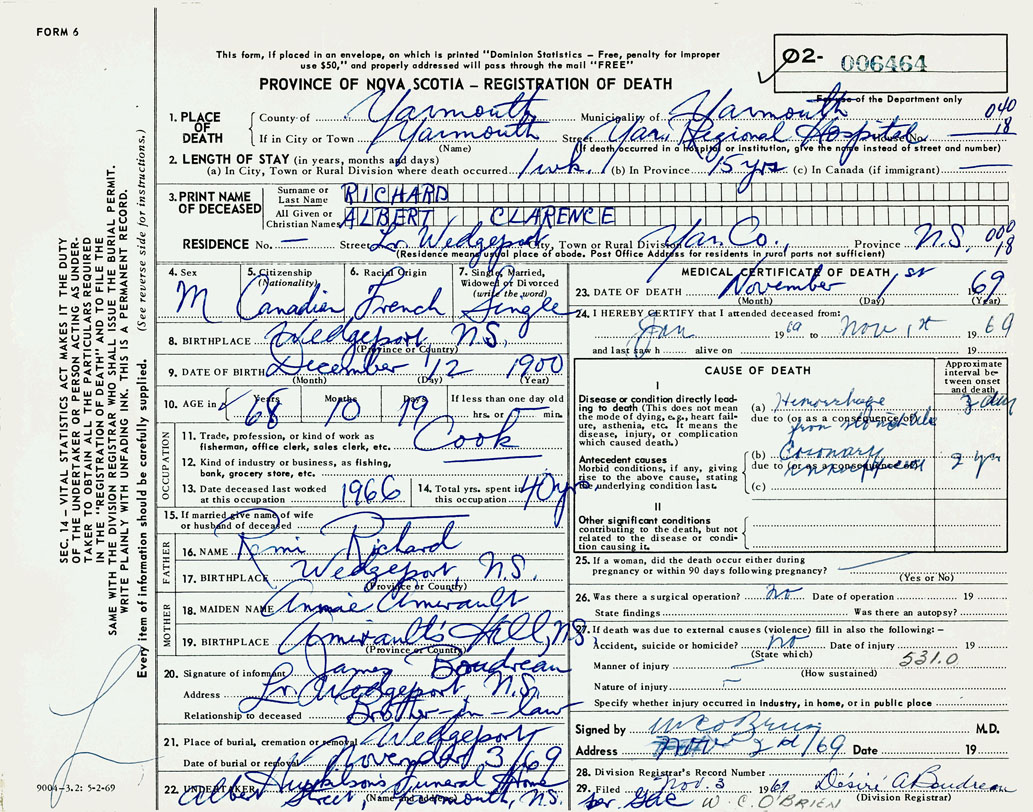 FORM 6
This form, if placed in an envelope, on which is printed "Dominion Statistics – Free, penalty for improper
use $50," and properly addressed will pass through the mail "FREE"
PROVINCE OF NOVA SCOTIA – REGISTRATION OF DEATH
02- 006464
For use of the Department only
040
18
1. PLACE OF DEATH
County of Yarmouth Municipality of Yarmouth
If in City or Town Yarmouth Street Yar. Regional Hospital House No.
(Name) (If death occurred in a hospital or institution, give the name instead of street and number)
2. LENGTH OF STAY (in years, months and days)
(a) In City, Town or Rural Division where death occurred 1 wk. (b) In Province 15 yrs (c) In Canada (if immigrant) —
3. PRINT NAME OF DECEASED
Surname or Last Name RICHARD
All Given or Christian Names ALBERT CLARENCE
RESIDENCE No. — Street Lr. Wedgeport City, Town or Rural Division Yar. Co., Province N.S. 000
18
(Residence means usual place of abode. Post Office Address for residents in rural parts not sufficient)
4. Sex M
5. Citizenship (Nationality) Canadian
6. Racial Origin French
7. Single, Married, Widowed or Divorced (write the word) Single
8. BIRTHPLACE Wedgeport, N.S.
(Province or Country)
9. DATE OF BIRTH December 12 1900
(Month) (Day) (Year)
10. AGE in Years 68 Months 10 Days 19 If less than one day hrs. or min.
OCCUPATION
11. Trade, profession, or kind of work as fisherman, office clerk, sales clerk, etc. Cook
12. Kind of industry or business, as fishing, bank, grocery store, etc.
13. Date deceased last worked at this occupation 1966
14. Total yrs. spent in this occupation 40 yrs.
15. If married give name of wife or husband of deceased
FATHER
16. NAME Remi Richard
17. BIRTHPLACE Wedgeport, N.S.
(Province or Country)
MOTHER
18. MAIDEN NAME Annie Amirault
19. BIRTHPLACE Amirault's Hill, N.S.
(Province or Country)
20. Signature of informant James Boudreau
Address Lr. Wedgeport, N.S.
Relationship to deceased Brother-in-law
21. Place of burial, cremation or removal Wedgeport
Date of burial or removal November 3/69
22. UNDERTAKER Funeral Home
Albert Street, Yarmouth, N.S.
(Name and address)
MEDICAL CERTIFICATE OF DEATH
23. DATE OF DEATH November 1st 1969
(Month) (Day) (Year)
24. I HEREBY CERTIFY that I attended deceased from:
Jan 1969 to Nov 1st 1969
and last saw h alive on 19
CAUSE OF DEATH
Approximate interval between onset and death
I
Disease or condition directly leading to death (This does not mean the mode of dying, e.g., heart failure, asthenia, etc. It means the disease, injury, or complication which caused death.)
(a) Hemorrhage 3 day
due to (or as a consequence of)
from
Antecedent causes
Morbid conditions, if any, giving rise to the above cause, stating the underlying condition last.
(b) Coronary 2 yr
due to (or as a consequence of)
(c)
II
Other significant conditions contributing to the death, but not related to the disease or condition causing it.
25. If a woman, did the death occur either during pregnancy or within 90 days following pregnancy?
(Yes or No)
26. Was there a surgical operation? no Date of operation 19
State findings Was there an autopsy?
27. If death was due to external causes (violence) fill in also the following: –
Accident, suicide or homicide? no Date of injury 19
(State which) 531.0
Manner of injury —
(How sustained)
Nature of injury —
Specify whether injury occurred in Industry, in home, or in public place
Signed by W C O'Brien M.D.
Address 2nd/69 Date 19
28. Division Registrar's Record Number
29. Filed Nov. 3 1969 Désiré A Boudreau
(Division Registrar)
W. C. O'BRIEN
SEC. 14 – VITAL STATISTICS ACT MAKES IT THE DUTY
OF THE UNDERTAKER OR PERSON ACTING AS UNDER-
TAKER TO OBTAIN ALL THE PARTICULARS REQUIRED
IN THE "REGISTRATION OF DEATH" AND TO FILE THE
SAME WITH THE DIVISION REGISTRAR WHO SHALL ISSUE THE BURIAL PERMIT.
WRITE PLAINLY WITH UNFADING INK. THIS IS A PERMANENT RECORD.
Every item of information should be carefully supplied. (See reverse side for instructions.)
9004-3.2: 5-2-69